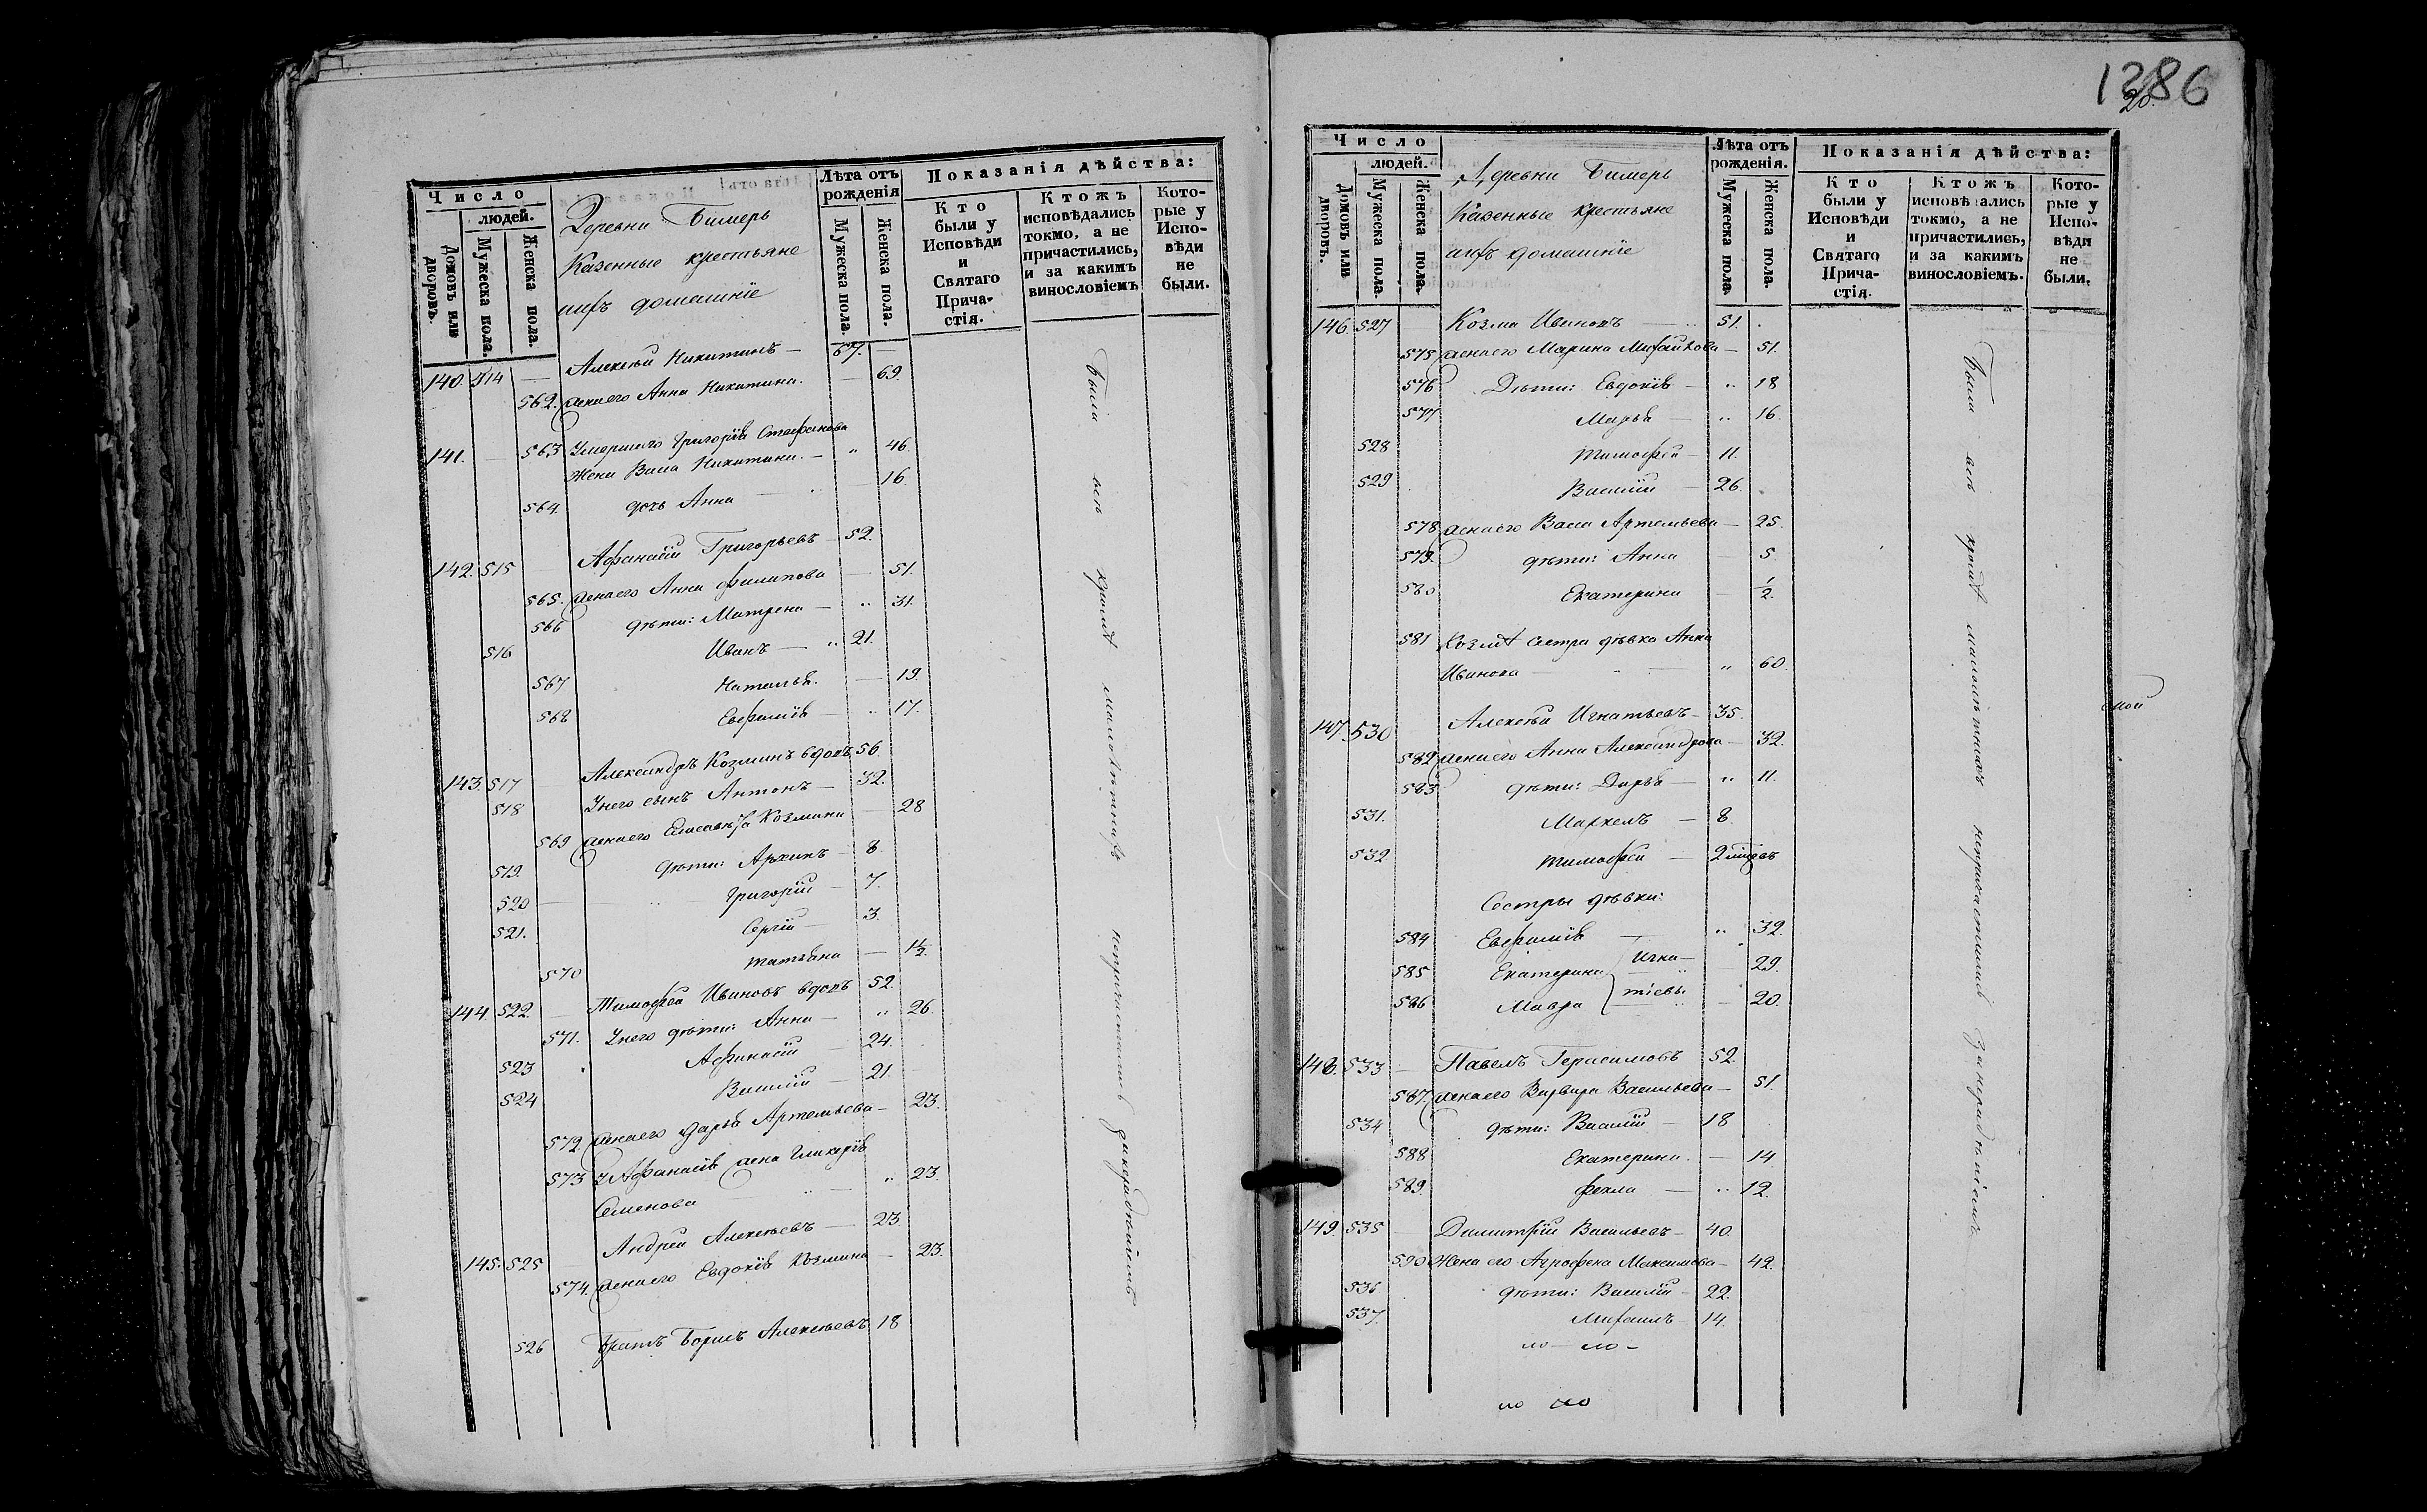 1286
20.
Число
людей.
Домовъ или дворовъ.
Мужеска пола.
Женска пола.
Деревни Бимерь
Казенные крестьяне
ихъ домашніе
Лѣта отъ рожденія
Мужеска пола.
Женска пола.
Показанія дѣйства:
Кто были у Исповѣди и Святаго Прича-стія.
Ктожъ исповѣдались токмо, а не причастились, и за какимъ винословіемъ
Кото-рые у Испо-вѣди не были.
140. 514 — Алексѣй Никитинъ — 67. —
562. жена его Анна Никитина. — 69.
141. — 563 Умершаго Григорія Стефанова
жена Васса Никитина. — „ 46.
564. дочь Анна — 16
142. 515 Афанасій Григорьевъ — 52.
565. жена его Анна Филипова — 51.
566 дѣти: Матрена — „ 31.
516 Иванъ — „ 21.
567 Наталья. — 19.
568 Евфимія — „ 17.
143. 517 Александръ Козминъ вдовъ 56
518 У него сынъ Антонъ — 32.
569 жена его Елисавета Козмина — 28
519. дѣти: Архипъ — 8.
520 — Григорій — 7.
521. Сергій — 3.
570 Татьяна — 1½
144. 522. — Тимофей Ивановъ вдовъ 52.
571. У него дѣти: Анна — „ 26.
523 Афанасій — 24.
524 Василій — 21.
572. жена его Дарья Артемьева — 23.
573 У Афанасія жена Гликерія
Семенова — „ 23.
145. 525 Андрей Алексѣевъ — 23
574. жена его Евдокія Козмина — 23.
526 Братъ Борисъ Алексѣевъ 18
Были всѣ кромѣ малолѣтнихъ
Число
людей.
Домовъ или дворовъ.
Мужеска пола.
Женска пола.
Деревни Бимерь
Казенные крестьяне
ихъ домашніе
Лѣта отъ рожденія.
Мужеска пола.
Женска пола.
Показанія дѣйства:
Кто были у Исповѣди и Святаго Прича-стія.
Ктожъ исповѣдались токмо, а не причастились, и за какимъ винословіемъ.
Кото-рые у Испо-вѣди не были.
146. 527 Козма Ивановъ — 51.
575 жена его Марина Михайлова — 51.
576 Дѣти: Евдокія — „ 18
577 Марья — „ 16.
528 Тимофей — 11.
529 Василій — 26.
578 жена его Васса Артемьева — 25.
579. дѣти: Анна — 5
580 Екатерина — ½.
581 Козмы сестра дѣвка Анна
Иванова — „ 60.
147. 530 Алексѣй Игнатьевъ — 35.
582 жена его Анна Александрова — 32.
583 дѣти: Дарья — „ 11.
531. Маркелъ — 8.
532 Тимофей — 2
Сестры дѣвки:
584 Евфимія — „ 32.
585 Екатерина Игна— 29.
586 Мавра тіевы — 20.
148. 533 Павелъ Герасимовъ 52.
587. жена его Варвара Васильева — 51.
534 дѣти: Василій — 18
588 Екатерина. — 14
589. Фекла — „ 12.
149. 535 Димитрій Васильевъ — 40.
590 Жена его Агрофена Максимова — 42.
536 дѣти: Василій — 22.
537. Михаилъ — 14.
Были всѣ кромѣ малолѣтнихъ